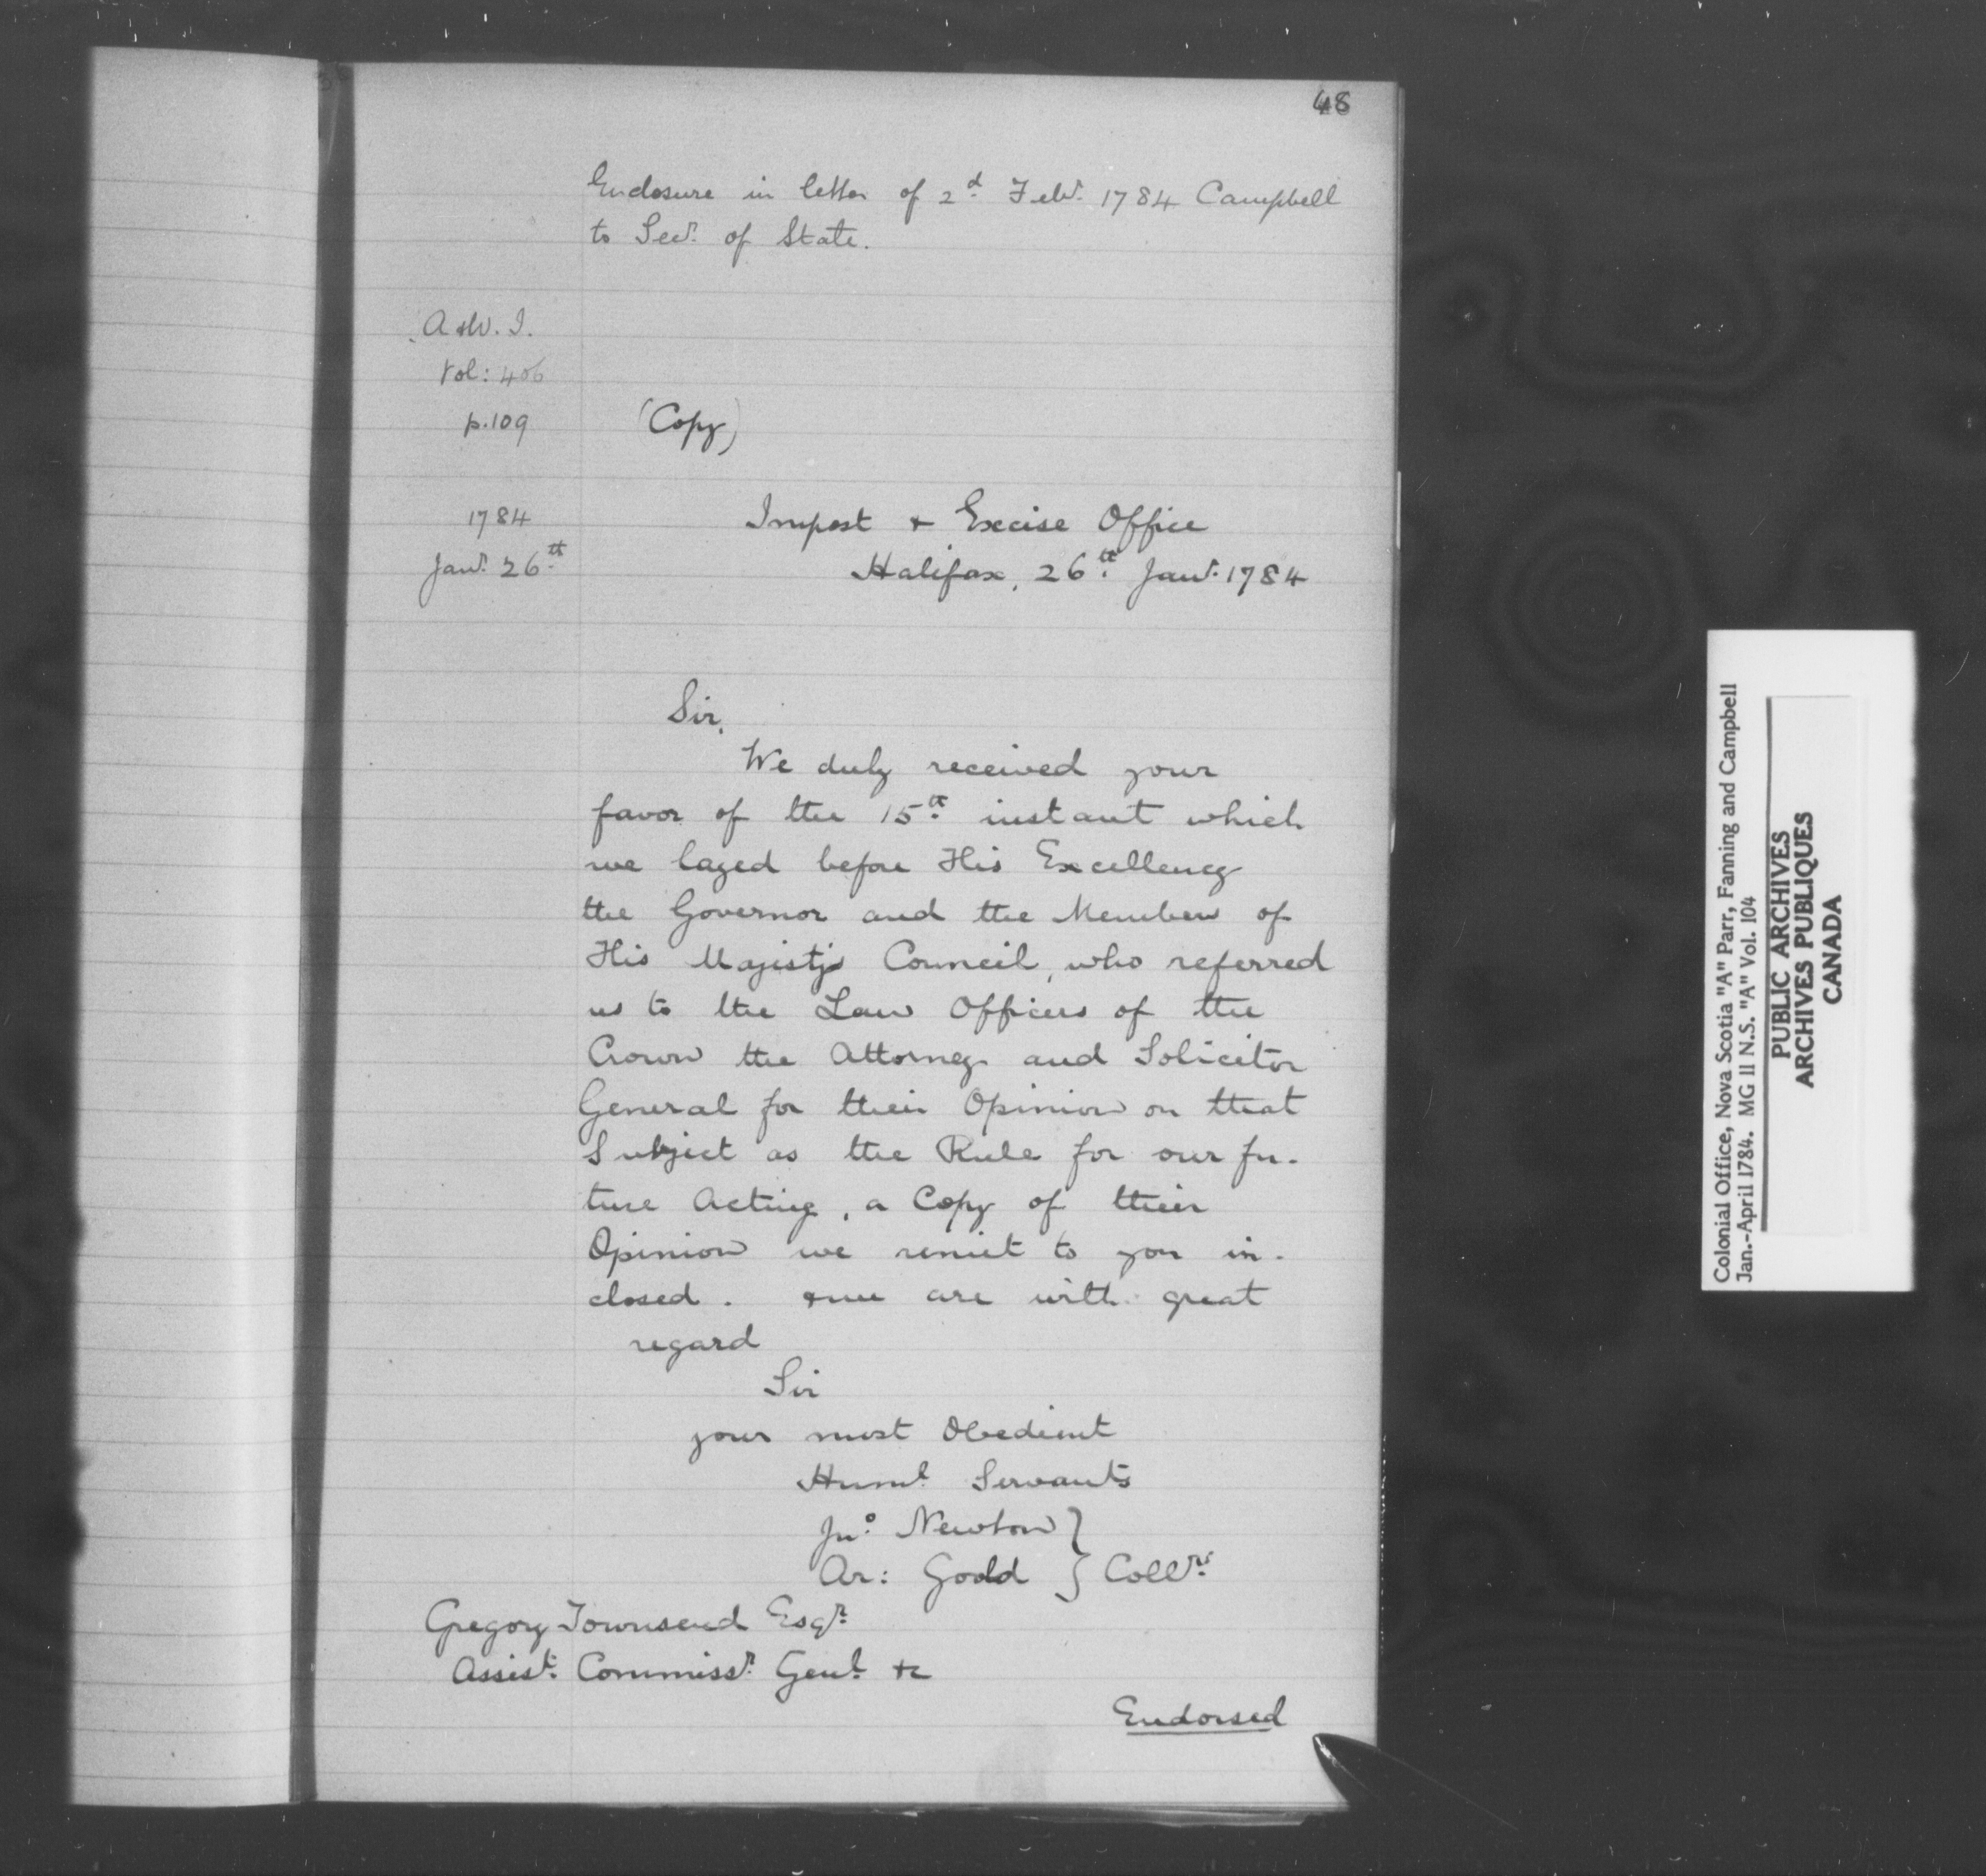 48
Enclosure in letter of 2d. Feby. 1784 Campbell
to Secy. of State.
A & W. I.
Vol: 406
p. 109
(Copy)
1784
Jany. 26th.
Impost & Excise Office
Halifax, 26th. Jany. 1784
Sir,
We duly received your
favor of the 15th. instant which
we layed before His Excellency
the Governor and the Members of
His Majistys Council, who referred
us to the Law Officers of the
Crown the Attorney and Solicitor
General for their Opinion on that
Subject as the Rule for our fu-
ture Acting, a Copy of their
Opinion we remit to you in-
closed. & we are with great
regard
Sir
your most Obedient
Huml. Servants
Jno. Newton }
Ar: Goold } Collrs.
Gregory Townsend Esqr.
Assist. Commissr. Genl. &c
Endorsed
Colonial Office, Nova Scotia "A" Parr, Fanning and Campbell
Jan.-April 1784. MG 11 N.S. "A" Vol. 104
PUBLIC ARCHIVES
ARCHIVES PUBLIQUES
CANADA